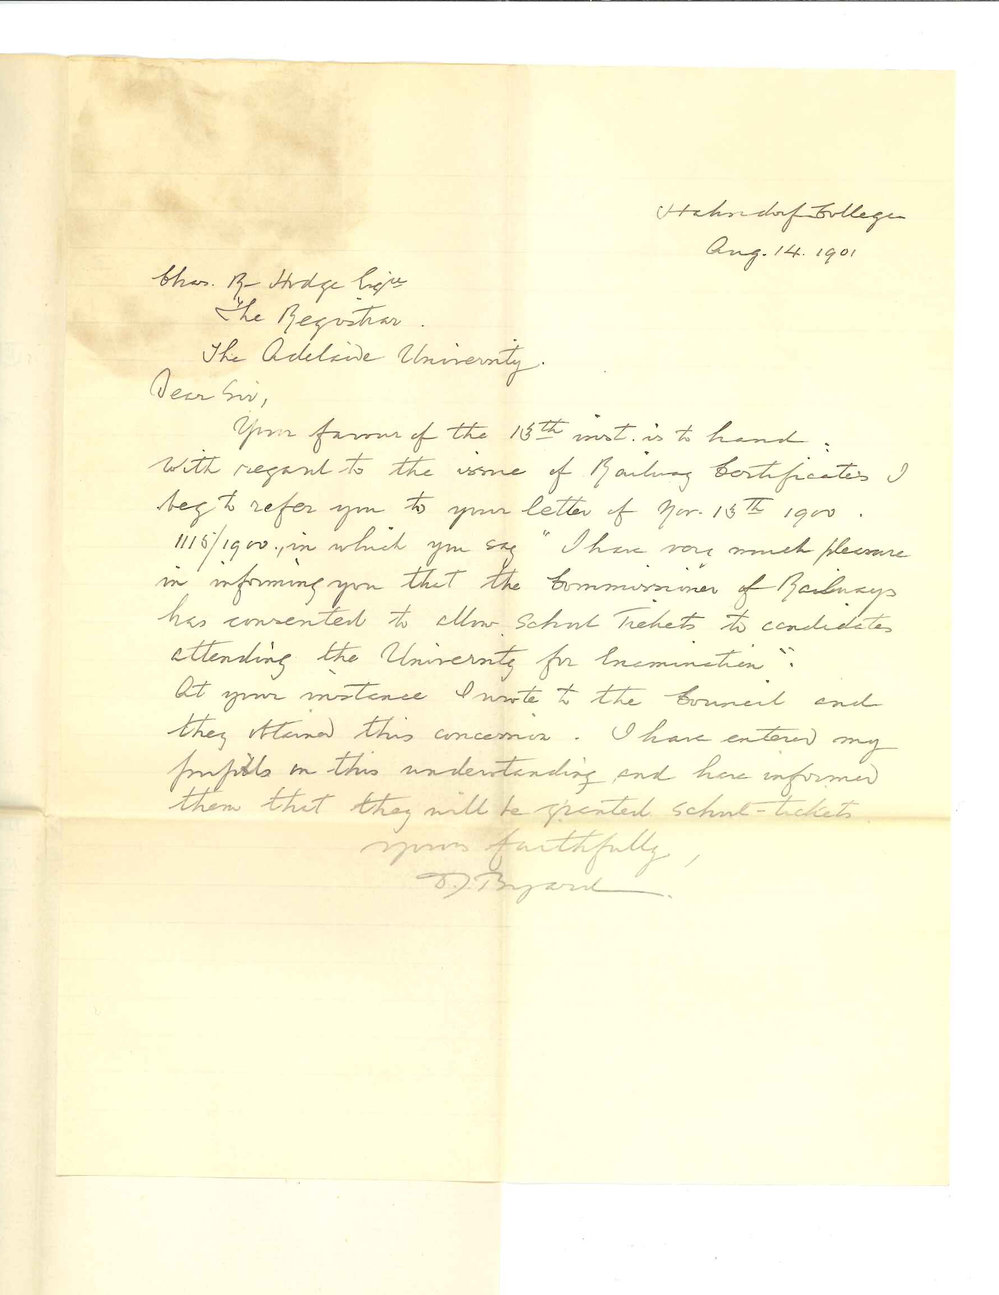 Hahndorf College
Aug. 14. 1901
Chas. R. Hodge Esqre
The Registrar.
The Adelaide University.
Dear Sir,
Your favour of the 13th inst. is to hand.
With regard to the issue of Railway Certificates I
beg to refer you to your letter of Nov. 13th 1900.
1115/1900., in which you say "I have very much pleasure
in informing you that the Commissioner of Railways
has consented to allow School Tickets to candidates
attending the University for Examination".
At your instance I wrote to the Council and
they obtained this concession. I have entered my
pupils on this understanding and have informed
them that they will be granted school-tickets
Yours faithfully,
D. J. Byard.